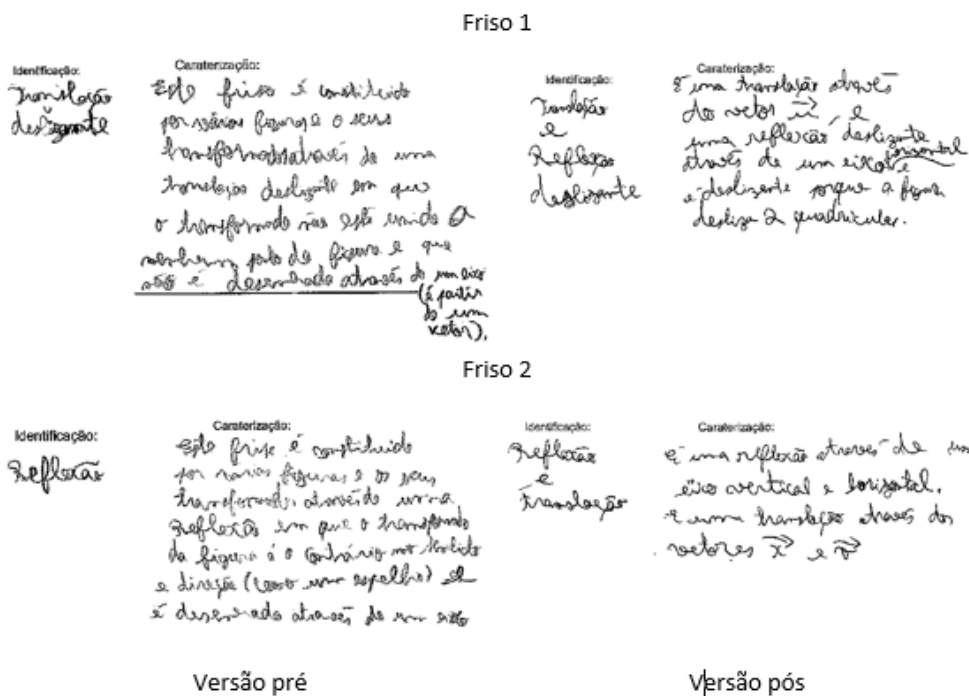 Friso 1
Identificação:
Translação
deslizante
Caraterização:
Este friso é constituido
por várias figuras e o seus
transformados através de uma
translação deslizante em que
o transformado não está unido a
nenhum ponto da figura e que
não é desenhado através de um eixo
(é partir
de um
vetor).
Identificação:
Translação
e
Reflexão
deslizante
Caraterização:
É uma translação através
do vetor u e
uma reflexão deslizante
através de um eixo horizontal e
é deslizante porque a figura
desliza 2 quadriculas.
Friso 2
Identificação:
Reflexão
Caraterização:
Este friso é constituido
por várias figuras e os seus
transformados através de uma
Reflexão em que o transformado
da figura é o contrário no sentido
e direção (como um espelho) e
é desenhado através de um eixo
Identificação:
Reflexão
e
translação
Caraterização:
É uma reflexão através de um
eixo vertical e horizontal.
E uma translação através dos
vetores x e v
Versão pré
Versão pós